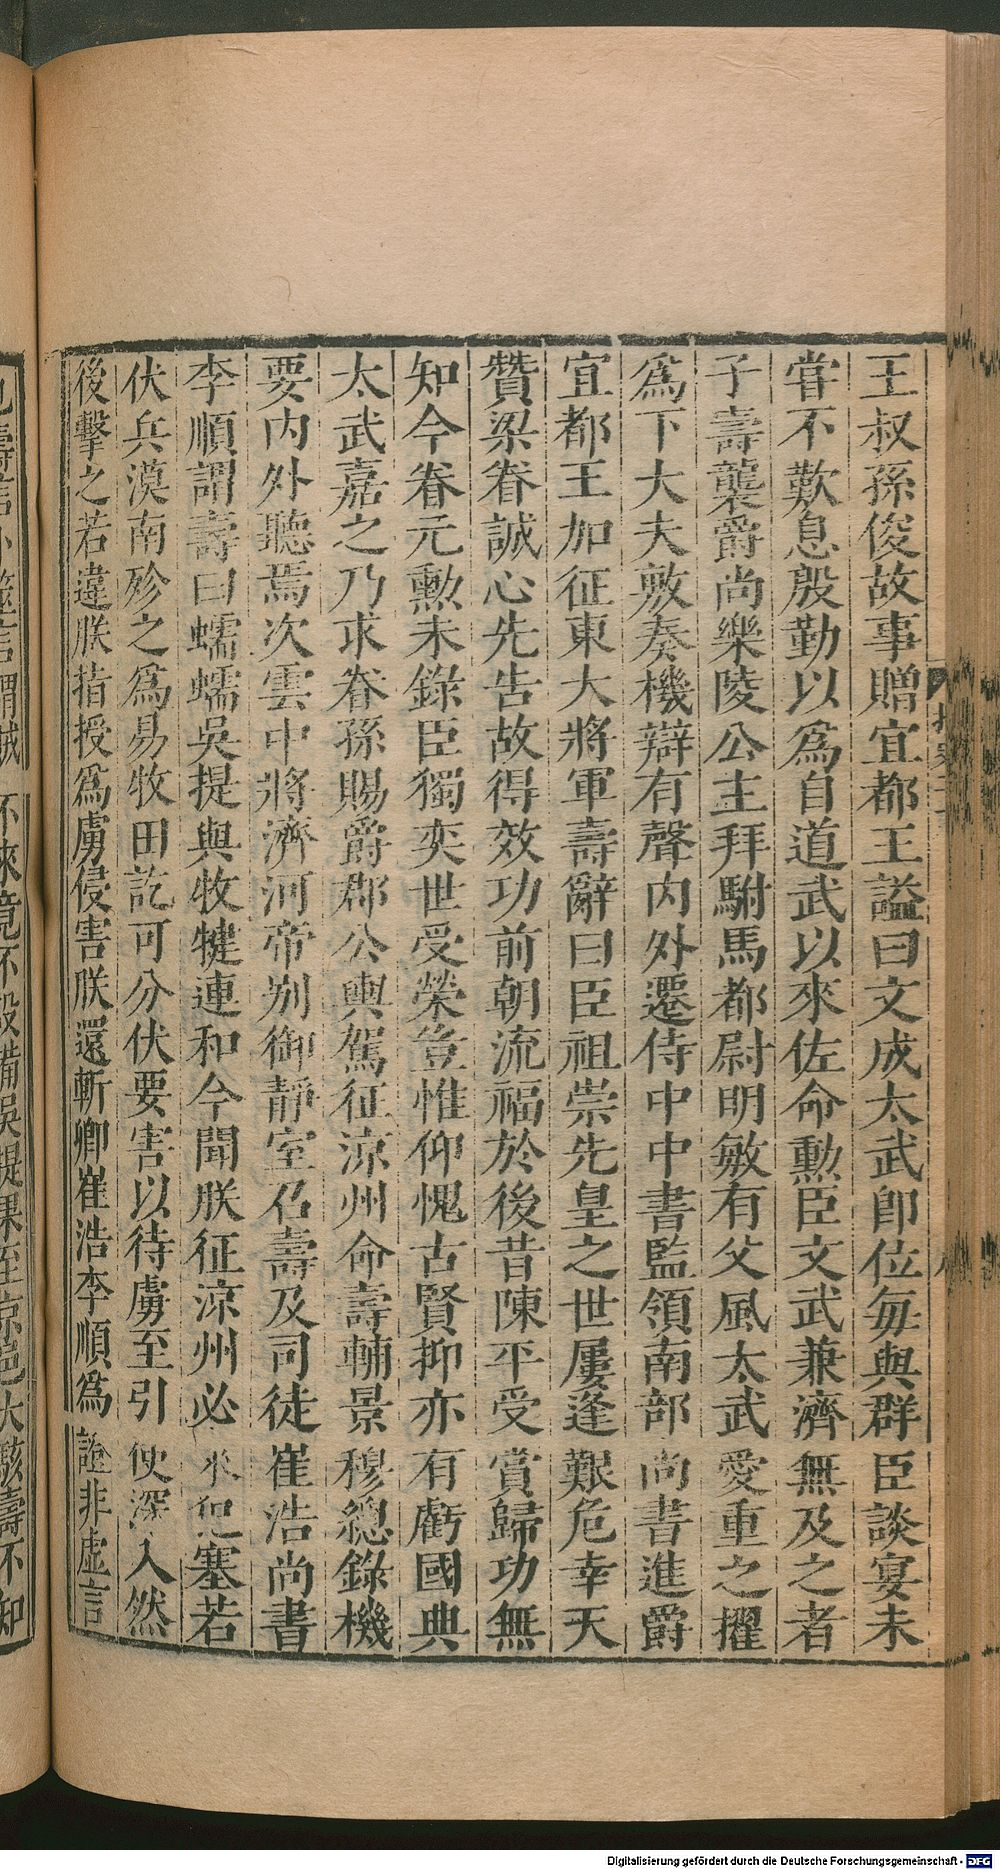 王叔孫俊故事贈宜都王謚曰文成太武卽位每與群臣談宴未
嘗不歎息殷勤以爲自道武以來佐命勲臣文武兼濟無及之者
子壽襲爵尚樂陵公主拜駙馬都尉明敏有父風太武愛重之擢
爲下大夫敷奏機辯有聲內外遷侍中中書監領南部尚書進爵
宜都王加征東大將軍壽辭曰臣祖崇先皇之世屢逢艱危幸天
贊梁眷誠心先告故得效功前朝流福於後昔陳平受賞歸功無
知今眷元勲未錄臣獨奕世受榮豈惟仰愧古賢抑亦有虧國典
太武嘉之乃求眷孫賜爵郡公輿駕征涼州命壽輔景穆總錄機
要內外聽焉次雲中將濟河帝別御靜室召壽及司徒崔浩尚書
李順謂壽曰蠕蠕吳提與牧犍連和今聞朕征涼州必來犯塞若
伏兵漠南殄之爲易牧田訖可分伏要害以待虜至引使深入然
後擊之若違朕指授爲虜侵害朕還斬卿崔浩李順爲證非虛言
不來竟不設備吳提果至京邑大駭壽不知
Digitalisierung gefördert durch die Deutsche Forschungsgemeinschaft - DFG